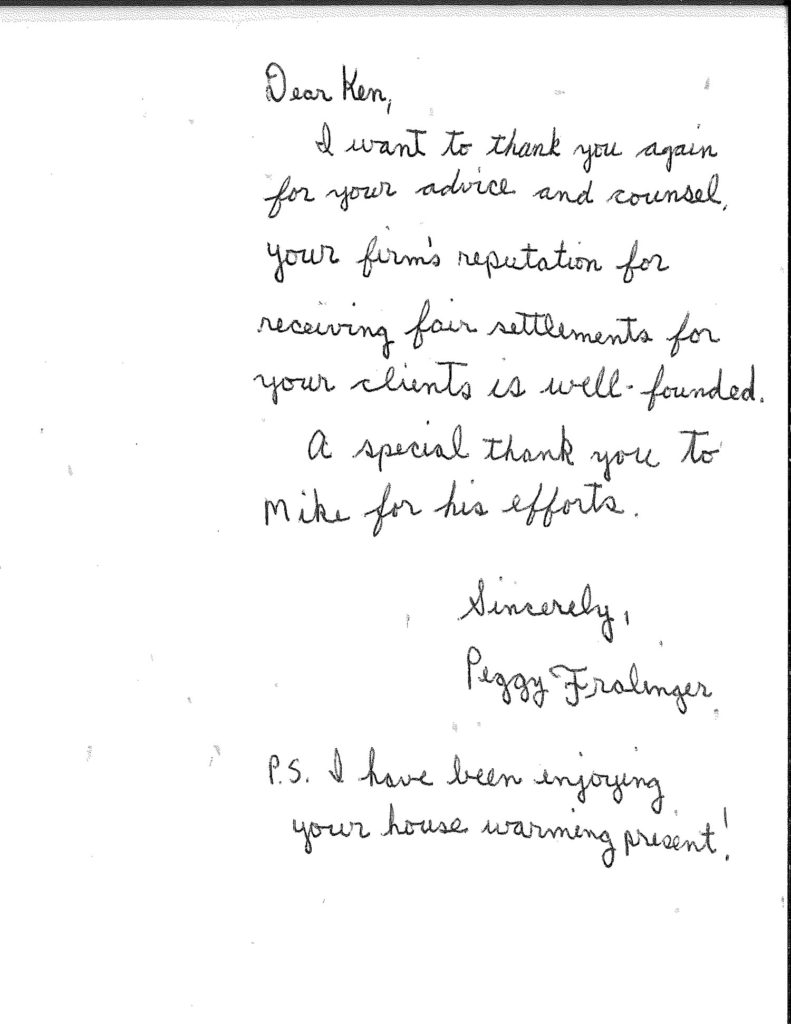 Dear Ken,
I want to thank you again
for your advice and counsel,
your firm's reputation for
receiving fair settlements for
your clients is well-founded.
A special thank you to
Mike for his efforts.
Sincerely,
Peggy Fralinger
P.S. I have been enjoying
your house warming present!